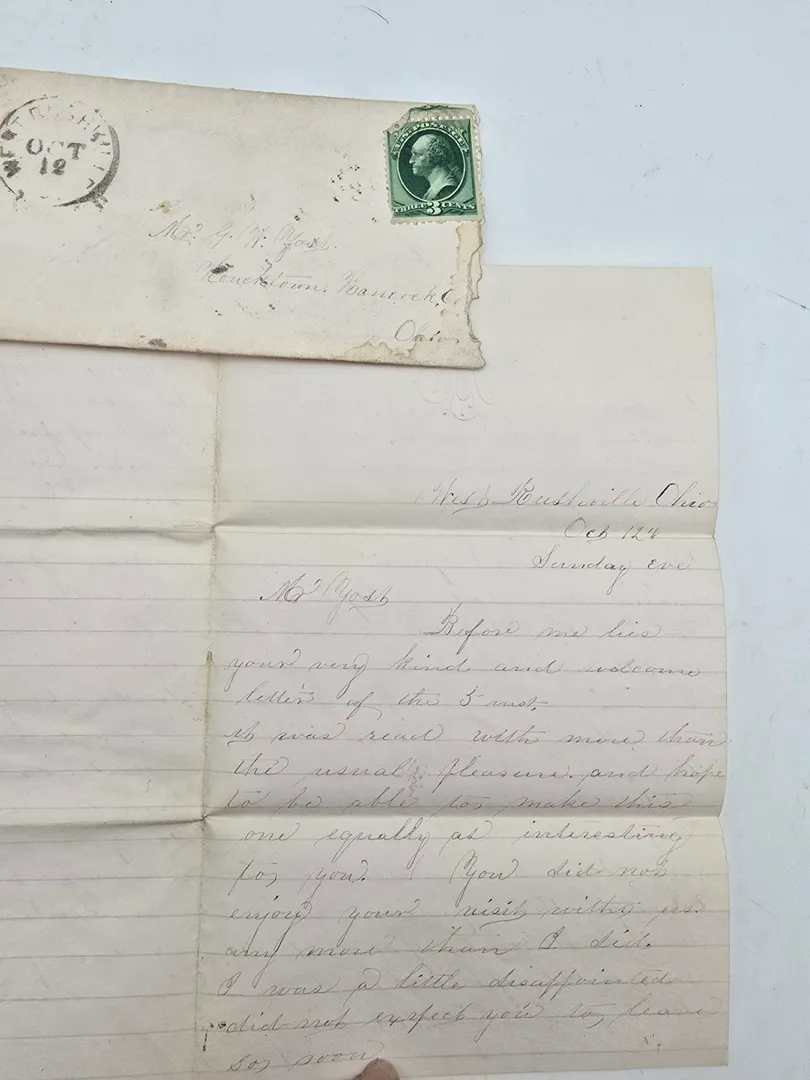 WEST RUSHVILLE
OCT
12
U.S. POSTAGE
THREE 3 CENTS
Mr. G. W. Yost.
Houcktown. Hancock, Co
Ohio
West Rushville Ohio
Oct 12th
Sunday eve
Mr Yost
Before me lies
your very kind and welcome
letter of the 5 inst.
it was read with more than
the usual pleasure. and hope
to be able to make this
one equally as interesting
to you. You did not
enjoy your visit with us.
any more than I did.
I was a little disappointed
did not expect you to leave
so soon.